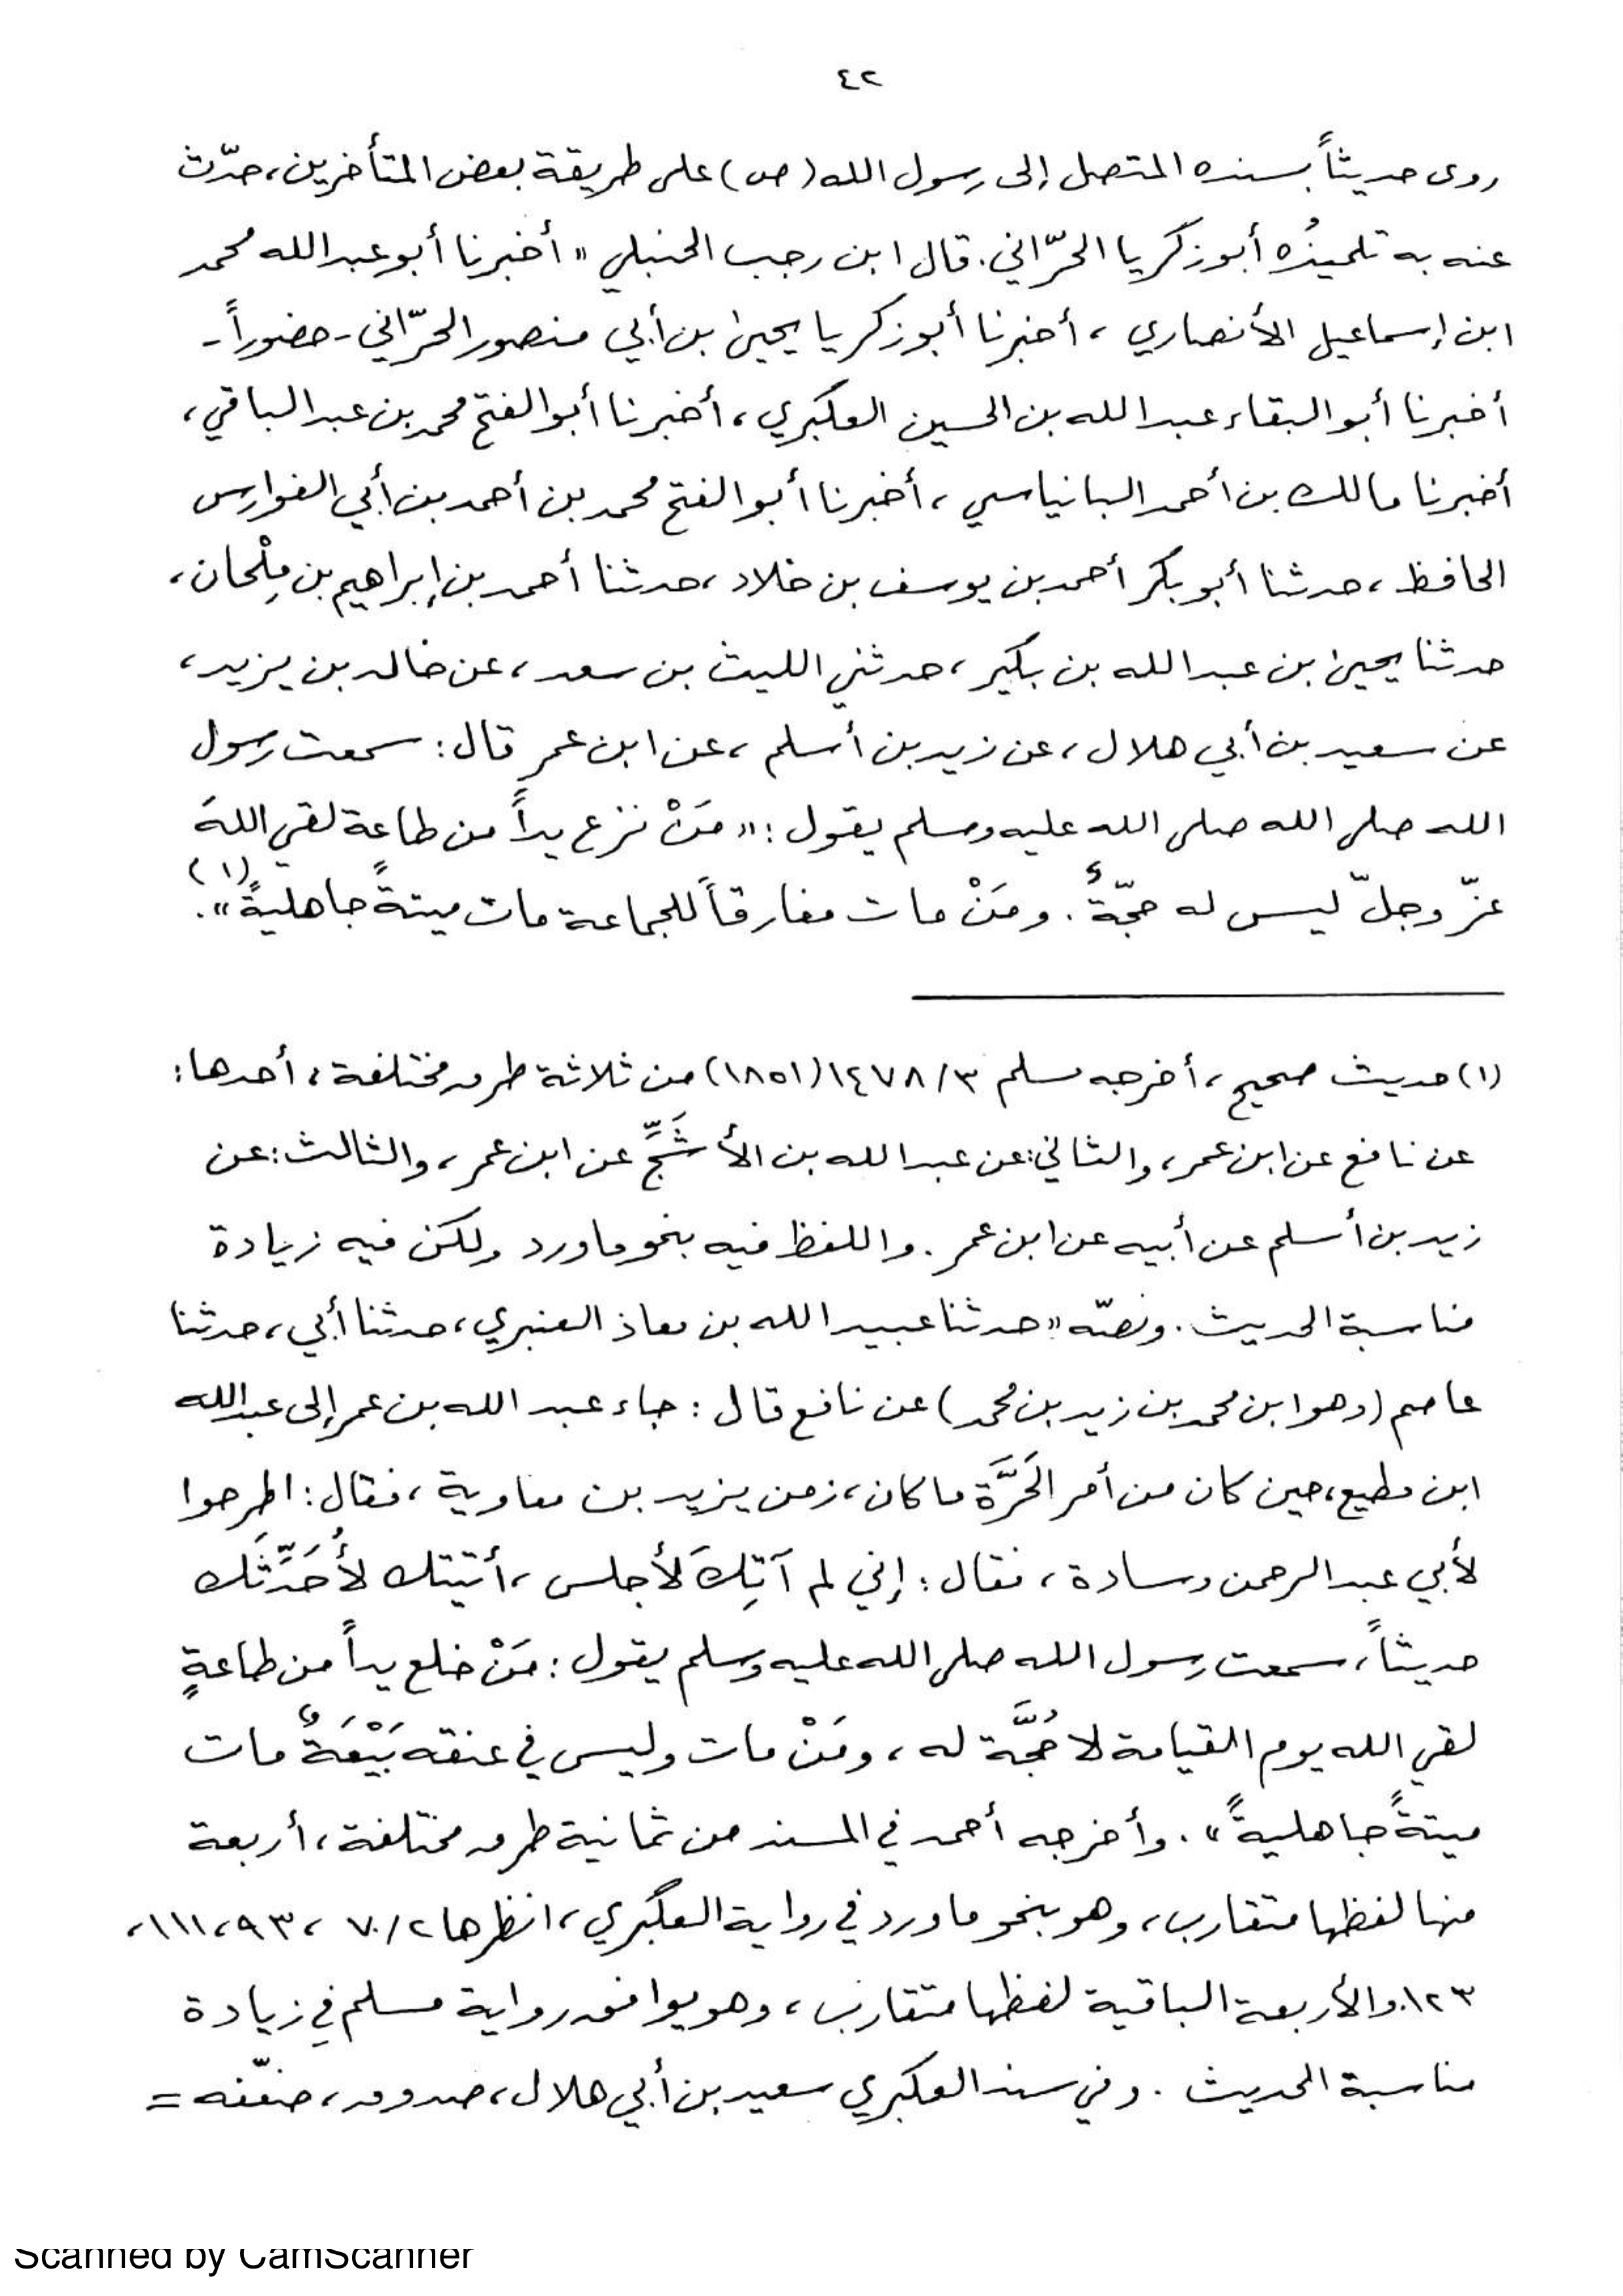 ٤٢
روى حديثاً بسنده المتصل إلى رسول الله (ص) على طريقة بعض المتأخرين، حدّث
عنه به تلميذُه أبو زكريا الحرّاني. قال ابن رجب الحنبلي «أخبرنا أبو عبد الله محمد
ابن إسماعيل الأنصاري، أخبرنا أبو زكريا يحيى بن أبي منصور الحرّاني - حضوراً -
أخبرنا أبو البقاء عبد الله بن الحسين العكبري، أخبرنا أبو الفتح محمد بن عبد الباقي،
أخبرنا مالك بن أحمد البانياسي، أخبرنا أبو الفتح محمد بن أحمد بن أبي الفوارس
الحافظ، حدثنا أبو بكر أحمد بن يوسف بن خلاد، حدثنا أحمد بن إبراهيم بن مِلْحان،
حدثنا يحيى بن عبد الله بن بكير، حدثني الليث بن سعد، عن خالد بن يزيد،
عن سعيد بن أبي هلال، عن زيد بن أسلم، عن ابن عمر قال: سمعت رسول
الله صلى الله صلى الله عليه وسلم يقول: «مَنْ نزع يداً من طاعة لقي اللهَ
عزّ وجلّ ليس له حجّةٌ. ومَنْ مات مفارقاً للجماعة مات ميتةً جاهليةً»(١).
(١) حديث صحيح، أخرجه مسلم ٣/١٤٧٨ (١٨٥١) من ثلاثة طرق مختلفة، أحدها:
عن نافع عن ابن عمر، والثاني: عن عبد الله بن الأشَجِّ عن ابن عمر، والثالث: عن
زيد بن أسلم عن أبيه عن ابن عمر. واللفظ فيه بنحو ما ورد ولكن فيه زيادة
مناسبة الحديث. ونصّه «حدثنا عبيد الله بن معاذ العنبري، حدثنا أبي، حدثنا
عاصم (وهو ابن محمد بن زيد بن محمد) عن نافع قال: جاء عبد الله بن عمر إلى عبد الله
ابن مطيع، حين كان من أمر الحَرَّة ما كان، زمن يزيد بن معاوية، فقال: اطرحوا
لأبي عبد الرحمن وسادة، فقال: إني لم آتِكَ لأجلس، أتيتك لأُحَدِّثَك
حديثاً، سمعت رسول الله صلى الله عليه وسلم يقول: مَنْ خلع يداً من طاعةٍ
لقي الله يوم القيامة لا حُجَّة له، ومَنْ مات وليس في عنقه بَيْعَةٌ مات
ميتةً جاهليةً». وأخرجه أحمد في المسند من ثمانية طرق مختلفة، أربعة
منها لفظها متقارب، وهو بنحو ما ورد في رواية العكبري، انظرها ٢/٧٠، ٩٣، ١١١،
١٢٣. والأربعة الباقية لفظها متقارب، وهو يوافق رواية مسلم في زيادة
مناسبة الحديث. وفي سند العكبري سعيد بن أبي هلال، صدوق، ضعّفه =
Scanned by CamScanner